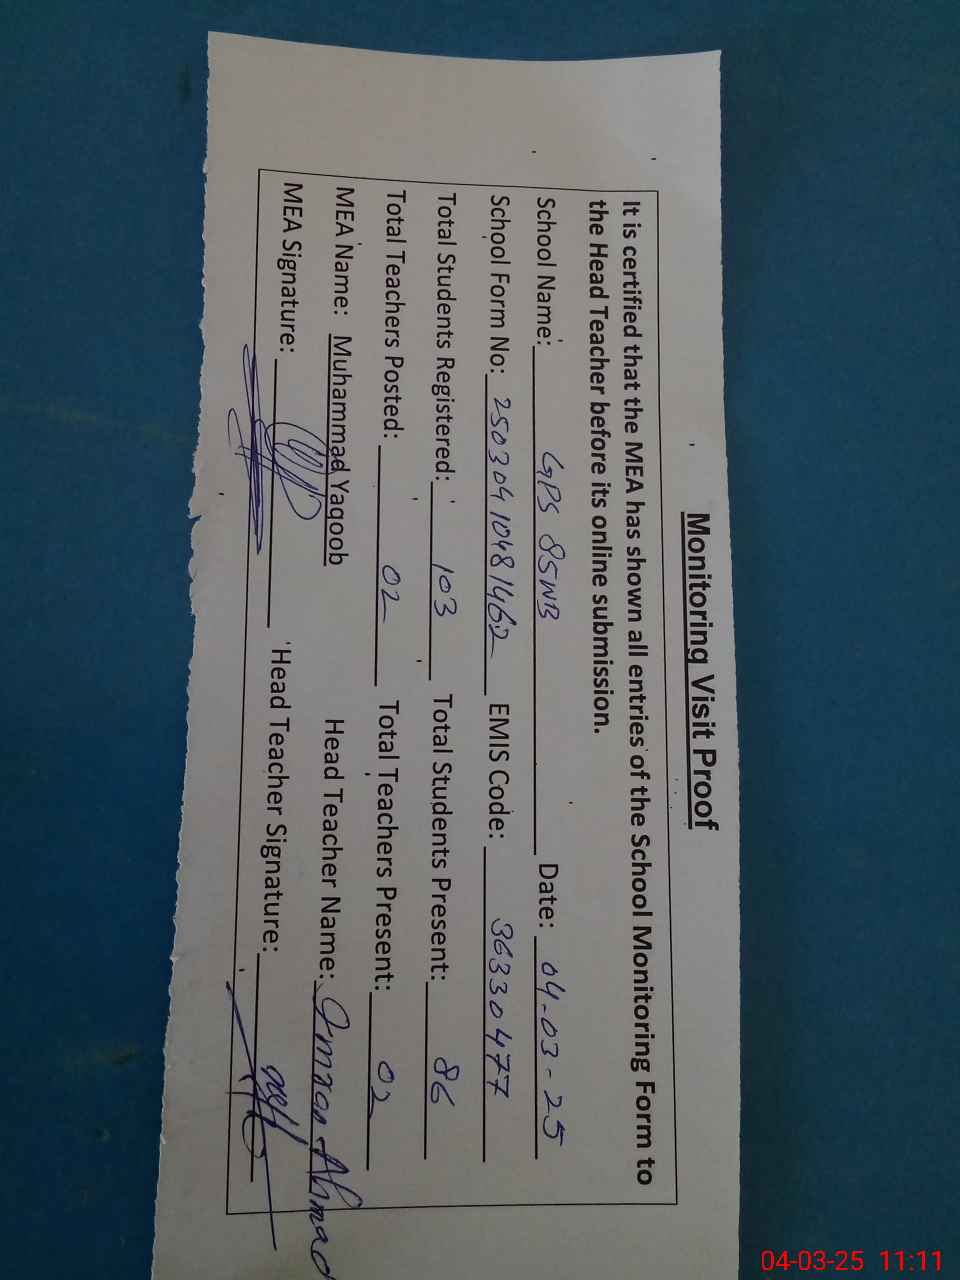 Monitoring Visit Proof
It is certified that the MEA has shown all entries of the School Monitoring Form to
the Head Teacher before its online submission.
School Name: GPS 85WB Date: 04-03-25
School Form No: 25030410481462 EMIS Code: 36330477
Total Students Registered: 103 Total Students Present: 86
Total Teachers Posted: 02 Total Teachers Present: 02
MEA Name: Muhammad Yaqoob Head Teacher Name: Imran Ahmad
MEA Signature: Head Teacher Signature:
04-03-25 11:11